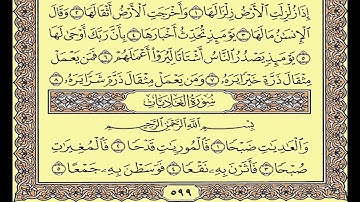 إِذَا زُلْزِلَتِ ٱلْأَرْضُ زِلْزَالَهَا ١ وَأَخْرَجَتِ ٱلْأَرْضُ أَثْقَالَهَا ٢ وَقَالَ
ٱلْإِنسَٰنُ مَا لَهَا ٣ يَوْمَئِذٍ تُحَدِّثُ أَخْبَارَهَا ٤ بِأَنَّ رَبَّكَ أَوْحَىٰ لَهَا
٥ يَوْمَئِذٍ يَصْدُرُ ٱلنَّاسُ أَشْتَاتًا لِّيُرَوْا۟ أَعْمَٰلَهُمْ ٦ فَمَن يَعْمَلْ
مِثْقَالَ ذَرَّةٍ خَيْرًا يَرَهُۥ ٧ وَمَن يَعْمَلْ مِثْقَالَ ذَرَّةٍ شَرًّا يَرَهُۥ ٨
سُورَةُ العَادِيَاتِ
بِسْمِ ٱللَّهِ ٱلرَّحْمَٰنِ ٱلرَّحِيمِ
وَٱلْعَٰدِيَٰتِ ضَبْحًا ١ فَٱلْمُورِيَٰتِ قَدْحًا ٢ فَٱلْمُغِيرَٰتِ
صُبْحًا ٣ فَأَثَرْنَ بِهِۦ نَقْعًا ٤ فَوَسَطْنَ بِهِۦ جَمْعًا ٥
٥٩٩